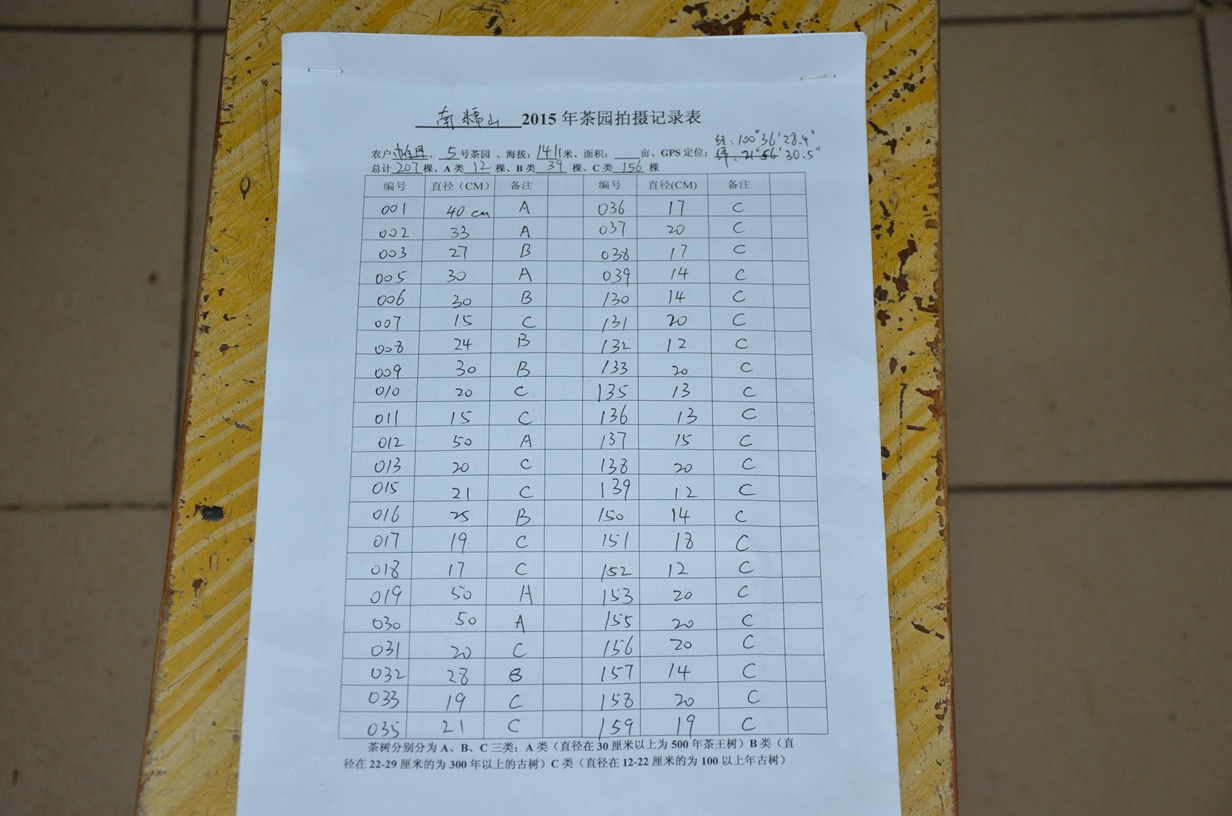 南糯山 2015年茶园拍摄记录表
经：100°36′28.4″
农户 、5号茶园、海拔：1411米、面积： 亩、GPS定位：纬：21°56′30.5″
总计207棵、A类12棵、B类39棵、C类156棵
编号 直径（CM） 备注 编号 直径(CM) 备注
001 40cm A 036 17 C
002 33 A 037 20 C
003 27 B 038 17 C
005 30 A 039 14 C
006 30 B 130 14 C
007 15 C 131 20 C
008 24 B 132 12 C
009 30 B 133 20 C
010 20 C 135 13 C
011 15 C 136 13 C
012 50 A 137 15 C
013 20 C 138 20 C
015 21 C 139 12 C
016 25 B 150 14 C
017 19 C 151 18 C
018 17 C 152 12 C
019 50 A 153 20 C
030 50 A 155 20 C
031 20 C 156 20 C
032 28 B 157 14 C
033 19 C 158 20 C
035 21 C 159 19 C
茶树分别分为A、B、C三类；A类（直径在30厘米以上为500年茶王树）B类（直
径在22-29厘米的为300年以上的古树）C类（直径在12-22厘米的为100以上年古树）